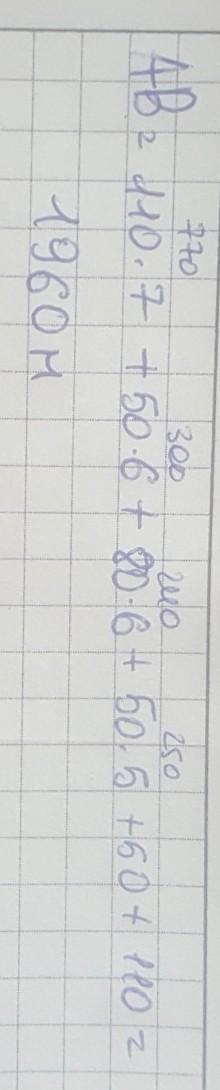 770 300 240 250
AB = 110·7 + 50·6 + 80·6 + 50·5 + 50 + 110 =
1960 м